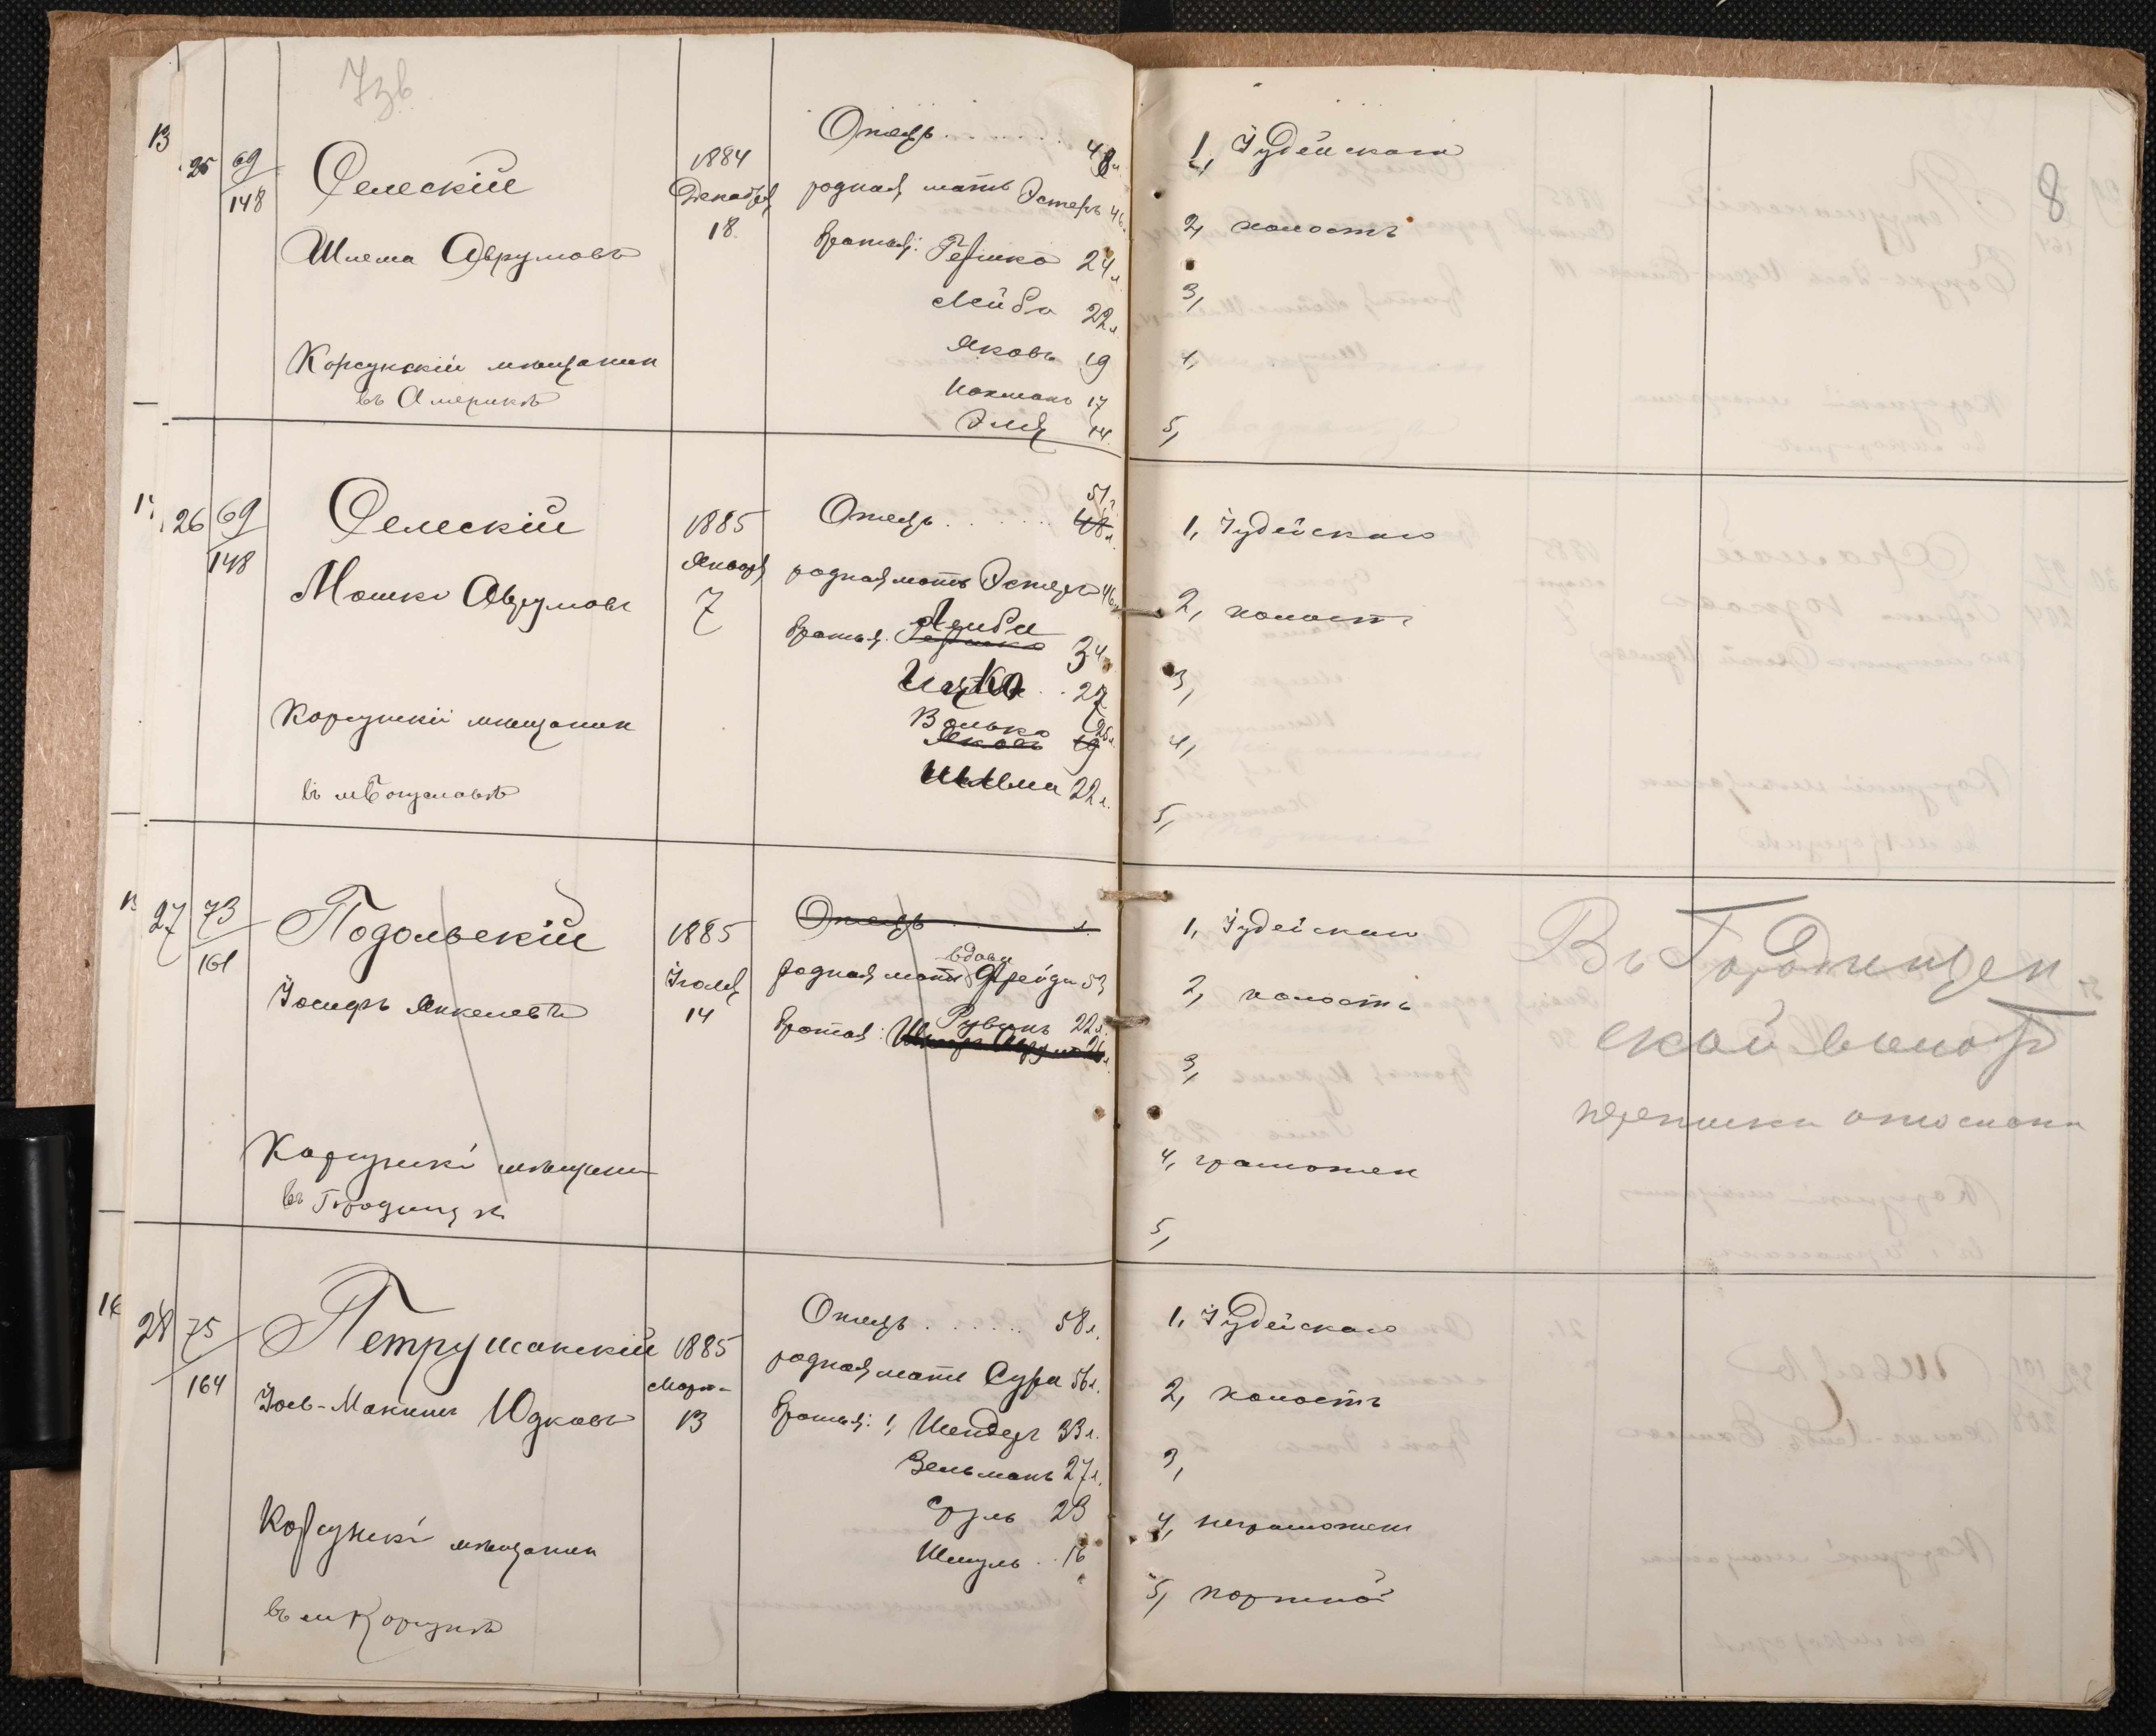 7зв
13
25 69/148
Селескій
Шлема Аврумовъ
Корсунскій мѣщанин
въ Америкѣ
1884
Декабря
18
Отецъ . . . . . . . 48 л.
родная мать Эстеръ 46
братья: Гершко 24 л.
Лейба 22 л.
Яковъ 19
Нахманъ 17
Эля 14
1, Іудейскаго
2, холостъ
3,
4,
5,
8
26 69/148
Селескій
Мошко Аврумовъ
Корсунскій мѣщанин
въ м Богуславѣ
1885
Января
7
51
Отецъ . . . . . . 48 л.
родная мать Эстеръ 46
Лейба
братья: Гершко 34
Ицко . . 27
Волько 25 л.
Яковъ 19
Шлема 22 л.
1, Іудейскаго
2, холостъ
3,
4,
5,
27 73/161
Подольскій
Іосифъ Янкелевъ
Корсунскі мѣщанин
въ Городищѣ
1885
Іюля
14
Отецъ . . . л.
вдова
родная мать Фрейда 53
Рувинъ 22 л.
братья:
1, Іудейскаго
2, холостъ
3,
4, грамотен
5,
Въ Городищен
ской волост
переписка отослана
16
28 75/164
Петрушанскій
Іось-Манишъ Юдковъ
Корсунскі мѣщанин
въ м Корсунѣ
1885
Март
13
Отецъ . . . . . . 58 л.
родная мать Сура 56 л.
братья: Шендеръ 33 л.
Зельманъ 27 л.
Сруль 23
Шмуль . . 16
1, Іудейскаго
2, холостъ
3,
4, неграмотен
5, портной